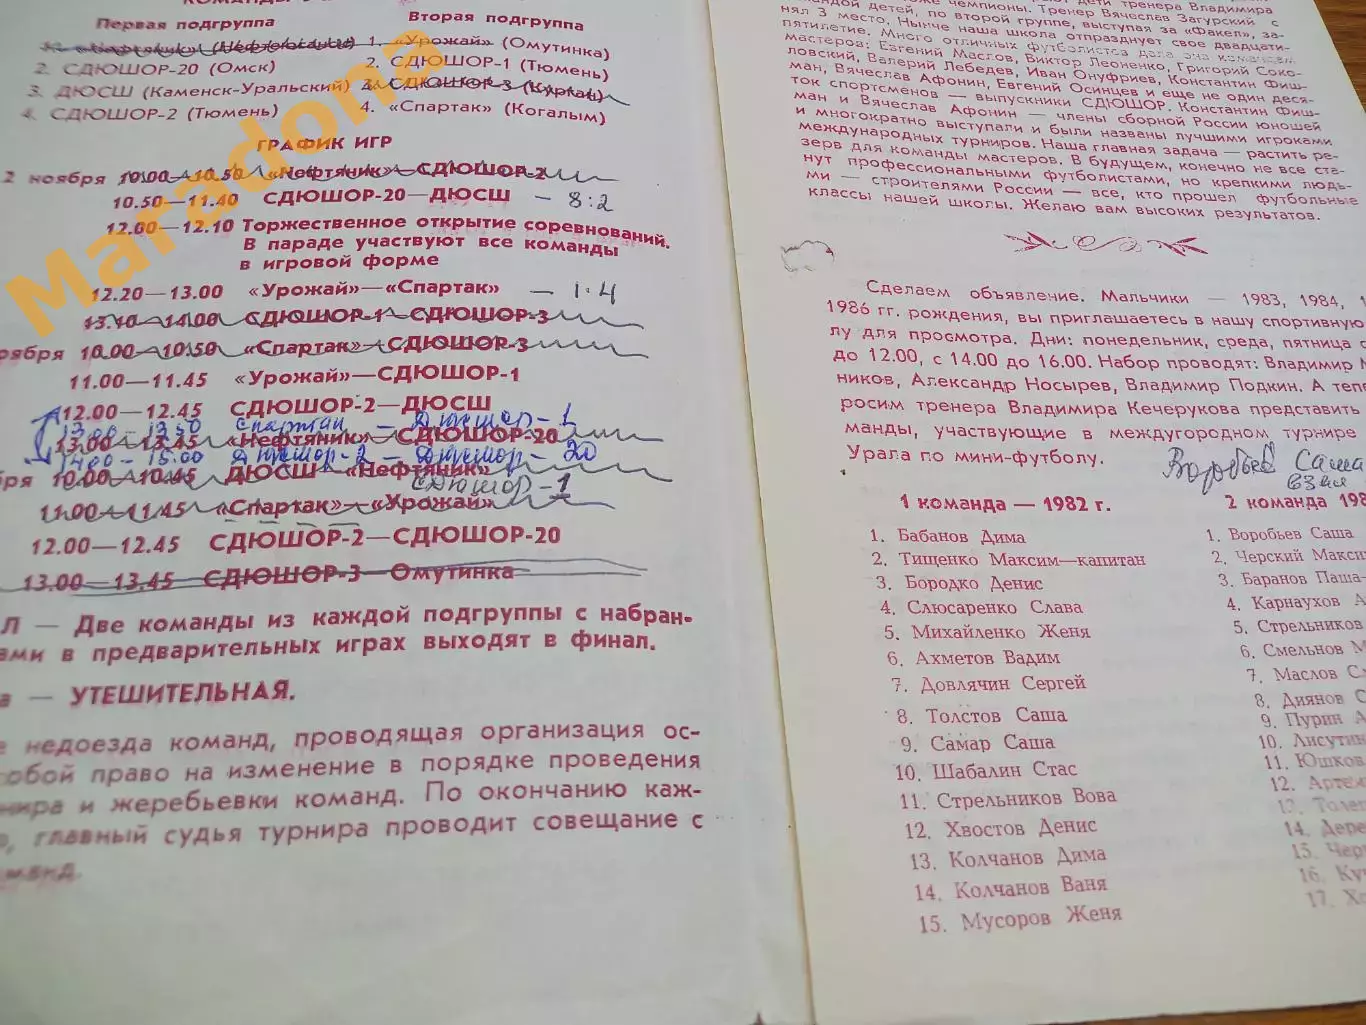 Первая подгруппа
1. «Нефтяник» (Нефтеюганск)
2. СДЮШОР-20 (Омск)
3. ДЮСШ (Каменск-Уральский)
4. СДЮШОР-2 (Тюмень)
Вторая подгруппа
1. «Урожай» (Омутинка)
2. СДЮШОР-1 (Тюмень)
3. СДЮШОР-3 (Курган)
4. «Спартак» (Когалым)
ГРАФИК ИГР
2 ноября 10.00—10.50 «Нефтяник»—СДЮШОР-2
10.50—11.40 СДЮШОР-20—ДЮСШ — 8:2
12.00—12.10 Торжественное открытие соревнований.
В параде участвуют все команды
в игровой форме
12.20—13.00 «Урожай»—«Спартак» — 1:4
13.10—14.00 СДЮШОР-1—СДЮШОР-3
ября 10.00—10.50 «Спартак»—СДЮШОР-3
11.00—11.45 «Урожай»—СДЮШОР-1
12.00—12.45 СДЮШОР-2—ДЮСШ
13.00—13.50 Спартак — Дюшор-1
13.00—13.45 «Нефтяник»—СДЮШОР-20
14.00—15.00 Дюшор-2 — Дюшор-20
бря 10.00—10.45 ДЮСШ—«Нефтяник»
СДЮШОР-1
11.00—11.45 «Спартак»—«Урожай»
12.00—12.45 СДЮШОР-2—СДЮШОР-20
13.00—13.45 СДЮШОР-3—Омутинка
Л — Две команды из каждой подгруппы с набран-
ами в предварительных играх выходят в финал.
а — УТЕШИТЕЛЬНАЯ.
е недоезда команд, проводящая организация ос-
собой право на изменение в порядке проведения
нира и жеребьевки команд. По окончанию каж-
о, главный судья турнира проводит совещание с
манд.
Maradom
же чемпионы. Тренер Вячеслав Загурский с
командой детей, по второй группе, выступая за «Факел», за-
нял 3 место. Нынче наша школа отпразднует свое двадцати-
пятилетие. Много отличных футболистов дала она командам
мастеров: Евгений Маслов, Виктор Леоненко, Григорий Соко-
ловский, Валерий Лебедев, Иван Онуфриев, Константин Фиш-
ман, Вячеслав Афонин, Евгений Осинцев и еще не один деся-
ток спортсменов — выпускники СДЮШОР. Константин Фиш-
ман и Вячеслав Афонин — члены сборной России юношей
и многократно выступали и были названы лучшими игроками
международных турниров. Наша главная задача — растить ре-
зерв для команды мастеров. В будущем, конечно не все ста-
нут профессиональными футболистами, но крепкими людь-
ми — строителями России — все, кто прошел футбольные
классы нашей школы. Желаю вам высоких результатов.
Сделаем объявление. Мальчики — 1983, 1984, 1
1986 гг. рождения, вы приглашаетесь в нашу спортивную
лу для просмотра. Дни: понедельник, среда, пятница с
до 12.00, с 14.00 до 16.00. Набор проводят: Владимир М
ников, Александр Носырев, Владимир Подкин. А тепе
росим тренера Владимира Кечерукова представить
манды, участвующие в междугородном турнире
Урала по мини-футболу.
Воробьев Саша
взял
1 команда — 1982 г.
1. Бабанов Дима
2. Тищенко Максим—капитан
3. Бородко Денис
4. Слюсаренко Слава
5. Михайленко Женя
6. Ахметов Вадим
7. Довлячин Сергей
8. Толстов Саша
9. Самар Саша
10. Шабалин Стас
11. Стрельников Вова
12. Хвостов Денис
13. Колчанов Дима
14. Колчанов Ваня
15. Мусоров Женя
2 команда 198
1. Воробьев Саша
2. Черский Макси
3. Баранов Паша-
4. Карнаухов А
5. Стрельников
6. Смельнов М
7. Маслов Сл
8. Диянов С
9. Пурин А
10. Лисутин
11. Юшков
12. Артем
13. Толе
14. Дере
15. Чер
16. Ку
17. Хо